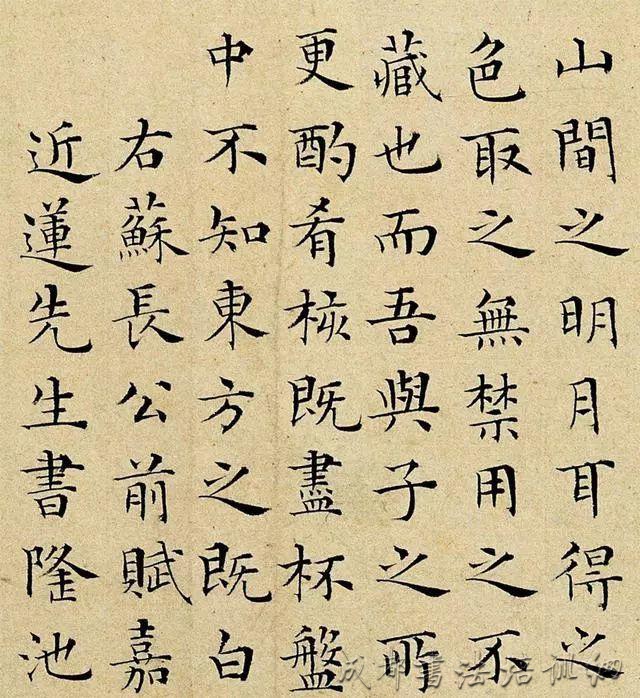 山間之明月耳得之
色取之無禁用之不
藏也而吾與子之所
更酌肴核既盡杯盤
中不知東方之既白
右蘇長公前賦嘉
近蓮先生書隆池
成都書法培训网